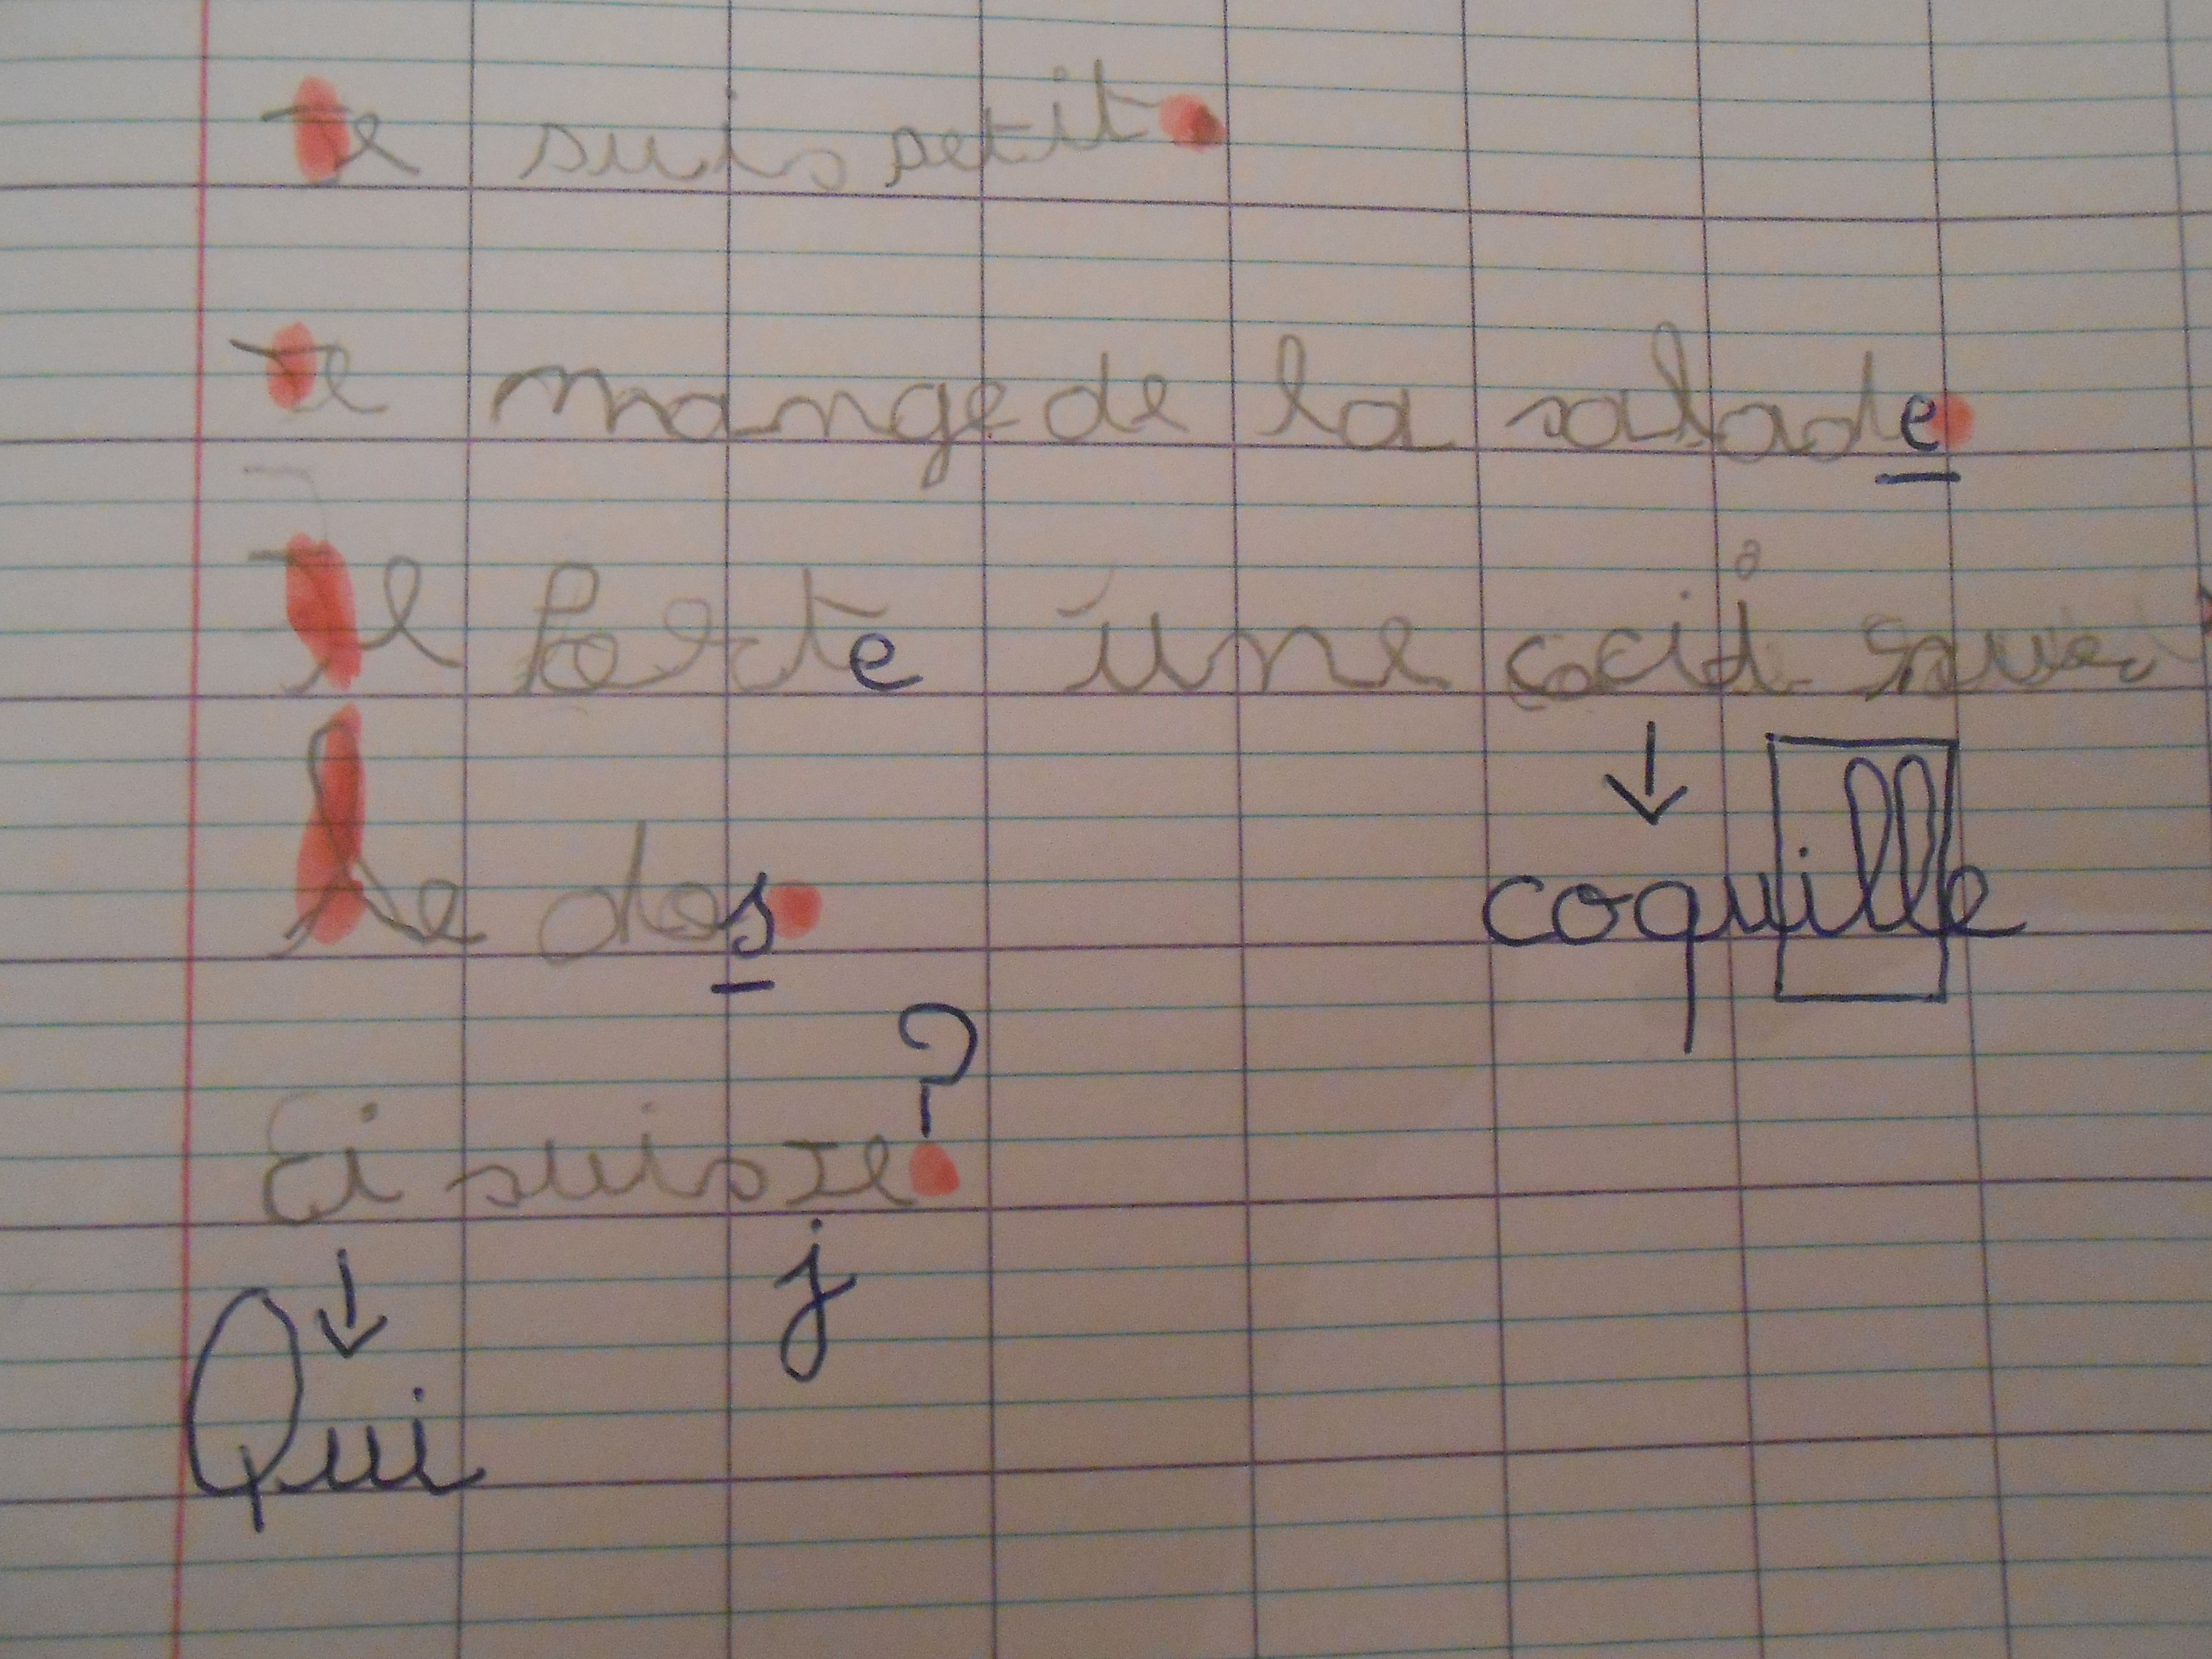 Je suis petit.
Je mange de la salade.
Je Porte une
coquille
le dos.
?
Ei suis Je.
j
Qui